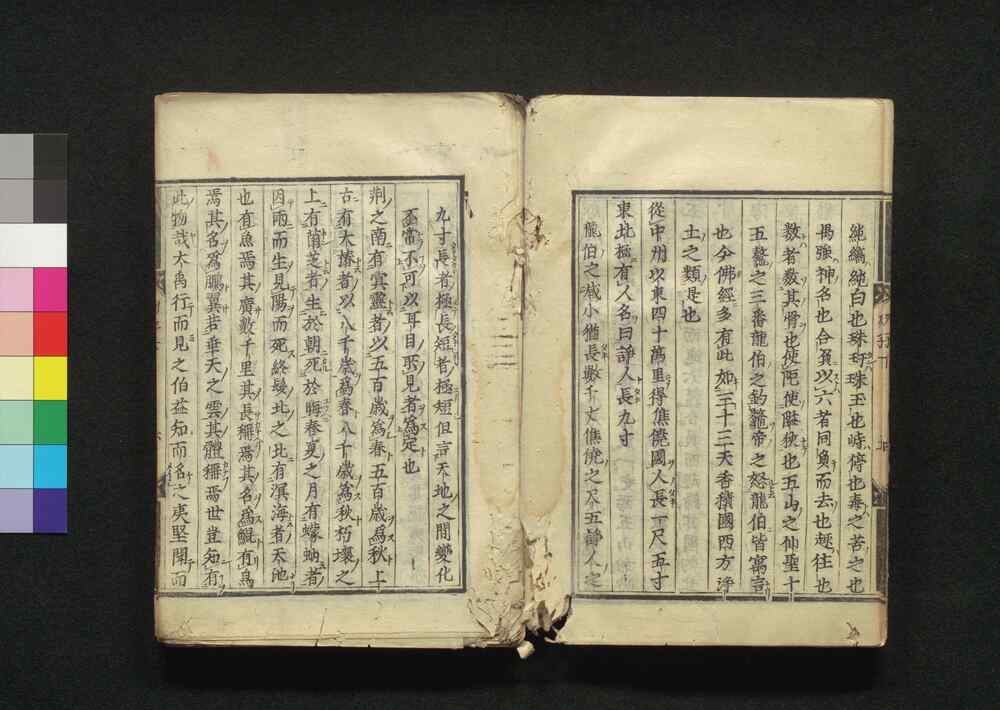 純縞純白也珠玕珠玉也峙停也毒之苦之也
禺強神名也合負以六者同負而去也趣往也
數者數其骨也使阨使隘狹也五山之仙聖十
五鼇之三番龍伯之釣鼇帝之怒龍伯皆寓言
也今佛經多有此如三十三天香積國西方淨
土之類是也
從中州以東四十萬里得僬僥國人長一尺五寸
東北極有人名曰諍人長九寸
龍伯之减小猶長數十丈僬僥之尺五諍人之
九寸長者極長短者極短但言天地之間變化
丕常不可以耳目所見者為定也
荊之南有冥靈者以五百歲為春五百歲爲秋上
古有大椿者以八千歲爲春八千歲為秋朽壤之
上有菌芝者生於朝死於晦春夏之月有蠓蚋者
因雨而生見陽而死終髮北之北有溟海者天池
也有魚焉其廣數千里其長稱焉其名爲鯤有鳥
焉其名爲鵬翼若垂天之雲其體稱焉世豈知有
此物哉大禹行而見之伯益知而名之夷堅聞而